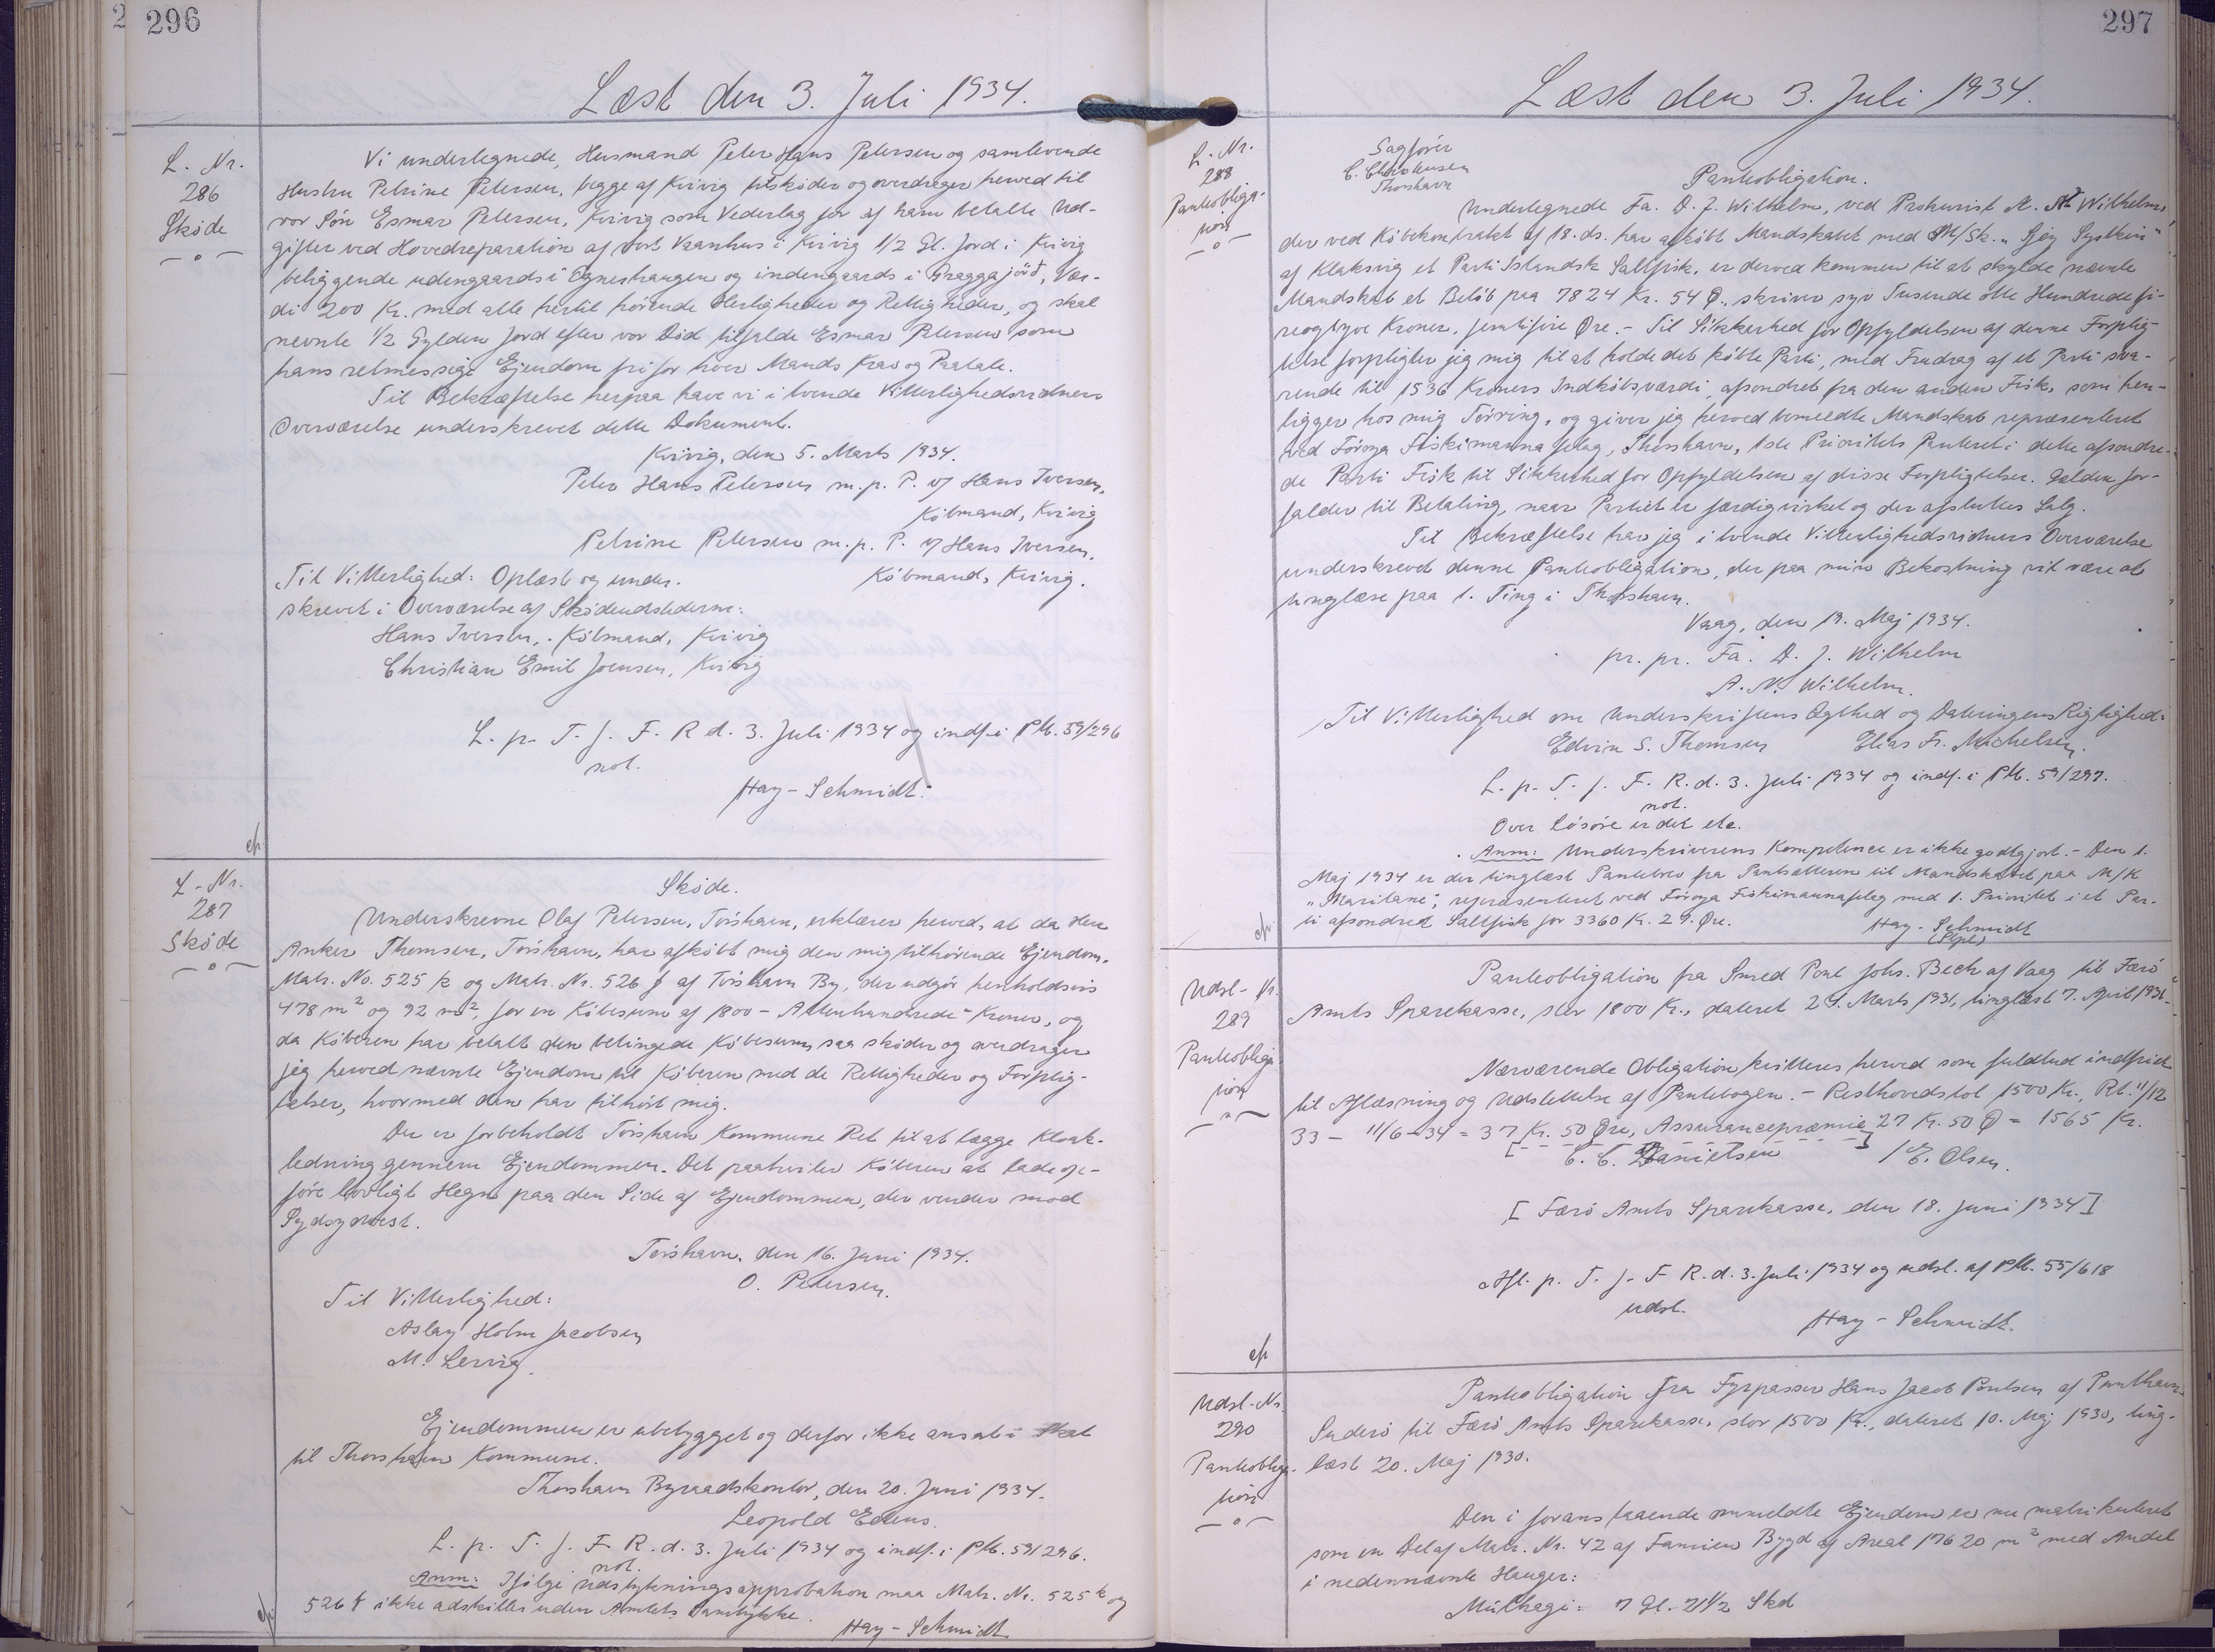 296
Læst den 3. Juli 1934.
L. Nr.
286
Skøde
Vi undertegnede, Husmand Peter Hans Petersen og samlevende
Hustru Petrine Petersen, begge af Kvivig tilskøder og overdrager herved til
vor Søn Esmar Petersen, Kvivig som Vederlag for af ham betalte Ud-
gifter ved Hovedreparation af vort Vaanhus i Kvivig 1/2 Gl. Jord i Kvivig
beliggende udengaards i Egneshaugen og indengaards i Graggajörd, Vær-
di 200 Kr. med alle hertil hørende Herligheder og Rettigheder, og skal
nevnte 1/2 Gylden Jord efter vor Död tilfalde Esmar Petersen som
hans retmessige Ejendom fri for hver Mands Krav og Paatale.
Til Bekræftelse herpaa have vi i tvende Vitterlighedsvidners
Overværelse underskrevet dette Dokument.
Kvivig, den 5. Marts 1934.
Peter Hans Petersen m.p. P. v/ Hans Iversen,
Købmand, Kvivig
Petrine Petersen m.p. P. v/ Hans Iversen.
Købmand, Kvivig.
Til Vitterlighed: Oplæst og under-
skrevet i Overværelse af Skødeudstederne:
Hans Iversen, Købmand, Kvivig
Christian Emil Joensen, Kvivig
L. p. T. f. F. R d. 3. Juli 1934 og indf. i PM. 59/296
not.
Hay-Schmidt.
L-Nr.
287
Skøde
Skøde.
Underskrevne Olaf Petersen, Torshavn, erklærer herved, at da Herr
Anker Thomsen, Torshavn, har afkøbt mig den mig tilhørende Ejendom,
Matr. No. 525 k og Matr. Nr. 526 f af Torshavn By, der udgør henholdsvis
478 m² og 92 m², for en Købesum af 1800 - Attenhundrede - Kroner, og
da Køberen har betalt den betingede Købesum, saa skøder og overdrager
jeg herved nævnte Ejendom til Køberen med de Rettigheder og Forplig-
telser, hvormed den har tilhørt mig.
Der er forbeholdt Torshavn Kommune Ret til at lægge Kloak-
ledning gennem Ejendommen. Det paahviler Køberen at lade op-
føre lovligt Hegn paa den Side af Ejendommen, der vender mod
Sydsydvest.
Torshavn, den 16. Juni 1934.
O. Petersen.
Til Vitterlighed:
Aslay Holm Jacobsen
M. Lervig.
Ejendommen er ubebygget og derfor ikke ansat i Skat
til Thorshavn Kommune.
Thorshavn Byraadskontor, den 20. Juni 1934.
Leopold
L. p. T. f. F. R. d. 3. Juli 1934 og indf. i PM. 59/296.
not.
Anm: Ifølge Udstykningsapprobation maa Matr. Nr. 525 k og
526 f ikke adskilles uden Amtets Samtykke.
Hay-Schmidt
297
Læst den 3. Juli 1934.
L. Nr.
288
Panteobliga-
tion
Sagfører
C. Christiansen
Thorshavn
Panteobligation.
Undertegnede Fa. D. J. Wilhelm, ved Prokurist A. N. Wilhelm,
der ved Købekontrakt af 18. ds. har afkøbt Mandskabet med M/Sk. "Sjey Systkin"
af Klaksvig et Parti Islandsk Saltfisk, er derved kommen til at skylde nævnte
Mandskab et Beløb paa 7824 Kr. 54 Ø., skriver syv Tusende otte Hundrede fi-
reogtyve Kroner, femtifire Øre. - Til Sikkerhed for Opfyldelsen af denne Forplig-
telse forpligter jeg mig til at holde det købte Parti, med Fradrag af et Parti sva-
rende til 1536 Kroners Indkøbsværdi, afsondret fra den anden Fisk, som hen-
ligger hos mig til Tørring, og giver jeg herved bemeldte Mandskab repræsenteret
ved Föroya Fiskimannafelag, Thorshavn, 1ste Prioritets Panteret i dette afsondre-
de Parti Fisk til Sikkerhed for Opfyldelsen af disse Forpligtelser. Gælden for-
falder til Betaling, naar Partiet er færdigvirket og der afsluttes Salg.
Til Bekræftelse har jeg i tvende Vitterlighedsvidners Overværelse
underskrevet denne Panteobligation, der paa min Bekostning vil være at
tinglæse paa 1. Ting i Thorshavn.
Vaag, den 19. Maj 1934.
pr. pr. Fa. D. J. Wilhelm
A. N. Wilhelm.
Til Vitterlighed om Underskriftens Ægthed og Dateringens Rigtighed:
Edvin S. Thomsen Elias Fr. Michelsen.
L. p. T. f. F. R. d. 3. Juli 1934 og indf. i PM. 59/297.
not.
Over løsøre er det etc.
Anm: Underskriverens Kompetence er ikke godtgjort. - Den 1.
Maj 1934 er der tinglæst Pantebrev fra Pantsætteren til Mandskabet paa M/K
"Maritane", repræsenteret ved Föroya Fiskimannafelag med 1. Prioritet i et Par-
ti afsondret Saltfisk for 3360 Kr. 29 Øre.
Hay-Schmidt
Udsl-Nr.
289
Panteobliga
tion
Panteobligation fra Smed Poul Johs. Bech af Vaag til Færø
Amts Sparekasse, stor 1800 Kr., dateret 24. Marts 1931, tinglæst 7. April 1931.
Nærværende Obligation kvitteres herved som fuldtud indfriet
til Aflæsning og Udslettelse af Pantebogen. - Resthovedstol 1500 Kr., Rt. 11/12
33 - 11/6-34 = 37 Kr. 50 Øre, Assurancepræmie 27 Kr. 50 Ø = 1565 Kr.
C. C. Danielsen / E. Olsen.
[Færø Amts Sparekasse, den 18. Juni 1934]
Afl. p. T. f. F R. d. 3. Juli 1934 og udsl. af PM. 55/618
udsl.
Hay-Schmidt.
Udsl-Nr.
290
Panteobliga-
tion
Panteobligation fra Fyrpasser Hans Jacob Poulsen af
Suderø til Færø Amts Sparekasse, stor 1500 Kr., dateret 10. Maj 1930, ting-
læst 20. Maj 1930.
Den i foranstaaende ommeldte Ejendom er nu matrikuleret
som en Del af Matr. Nr. 42 af Famien Bygd af Areal 17620 m² med Andel
i nedennævnte Hauger:
Múlhagi: 7 Gl. 21 1/2 Skd